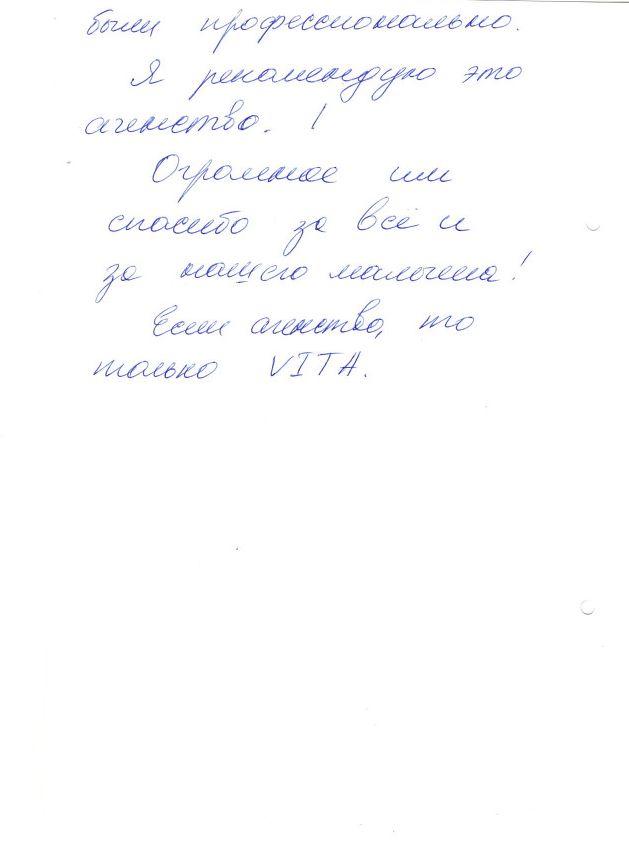 были профессионально.
Я рекомендую это
агенство. !
Огромное им
спасибо за всё и
за нашего малыша!
Если агенство, то
только VITA.